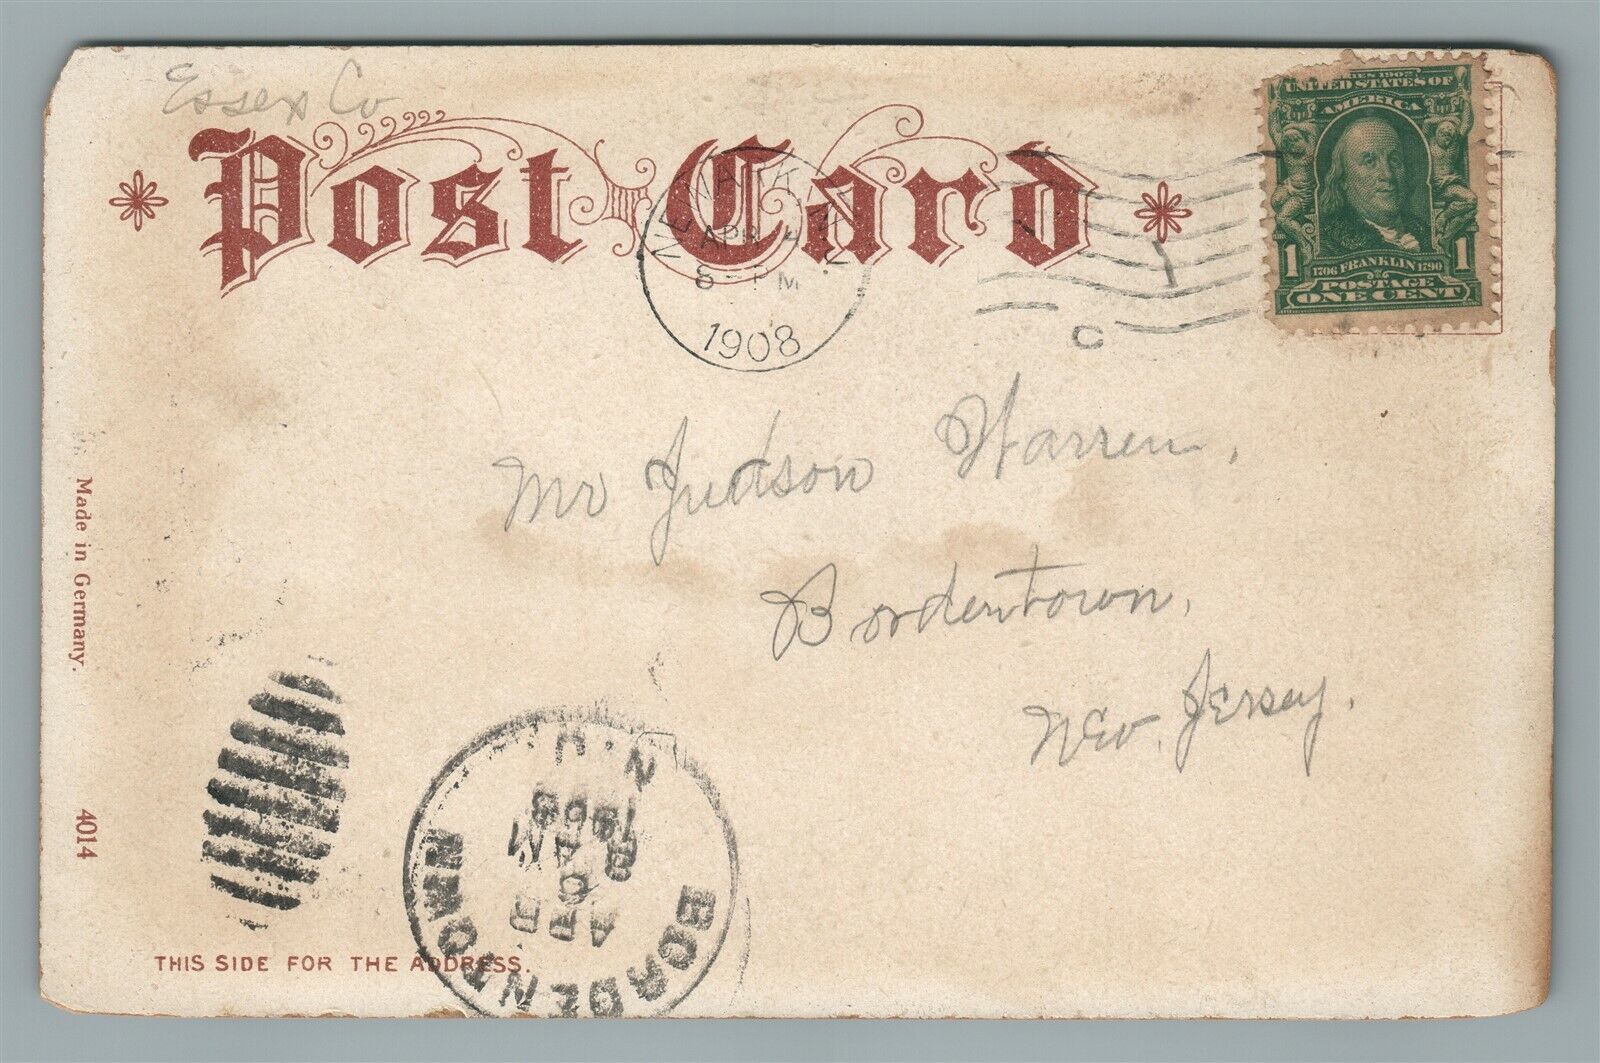 Essex Co
Post Card
NEWARK, N.J.
APR 4
8 - PM
1908
SERIES 1902
UNITED STATES OF
AMERICA
1 1
1706 FRANKLIN 1790
POSTAGE
ONE CENT
C
Mr Judson Warren,
Bordentown,
New. Jersey.
Made in Germany.
4014
BORDENTOWN
N.J.
APR
AM
1908
THIS SIDE FOR THE ADDRESS.